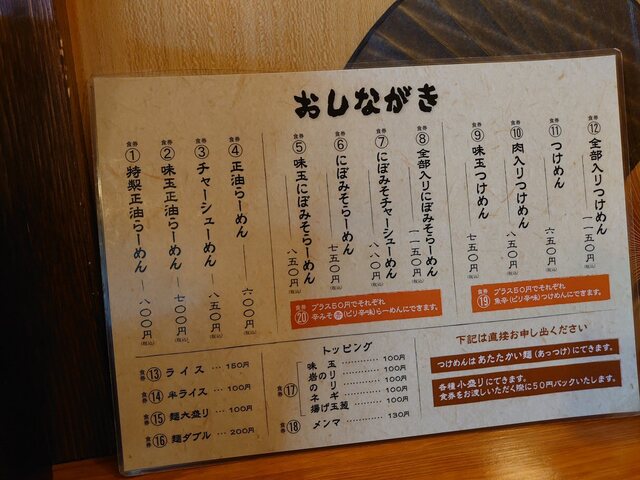 おしながき
食券⑫ 全部入りつけめん 一一五〇円(税込)
食券⑪ つけめん 六五〇円(税込)
食券⑩ 肉入りつけめん 八五〇円(税込)
食券⑨ 味玉つけめん 七五〇円(税込)
食券⑲ プラス50円でそれぞれ
魚辛(ピリ辛味)つけめんにできます。
食券⑧ 全部入りにぼみそらーめん 一一五〇円(税込)
食券⑦ にぼみそチャーシューめん 八八〇円(税込)
食券⑥ にぼみそらーめん 七五〇円(税込)
食券⑤ 味玉にぼみそらーめん 八五〇円(税込)
食券⑳ プラス50円でそれぞれ
辛みそ辛(ピリ辛味)らーめんにできます。
食券④ 正油らーめん 六〇〇円(税込)
食券③ チャーシューめん 八五〇円(税込)
食券② 味玉正油らーめん 七〇〇円(税込)
食券① 特製正油らーめん 八〇〇円(税込)
食券⑬ ライス … 150円
食券⑭ 半ライス … 100円
食券⑮ 麺大盛り … 100円
食券⑯ 麺ダブル … 200円
トッピング
食券⑰
味玉 ………… 100円
岩のり ………… 100円
のり ………… 100円
ネギ ………… 100円
揚げ玉葱 ………… 100円
食券⑱ メンマ ………… 130円
下記は直接お申し出ください
つけめんはあたたかい麺(あっつけ)にできます。
各種小盛りにできます。
食券をお渡しいただく際に50円バックいたします。